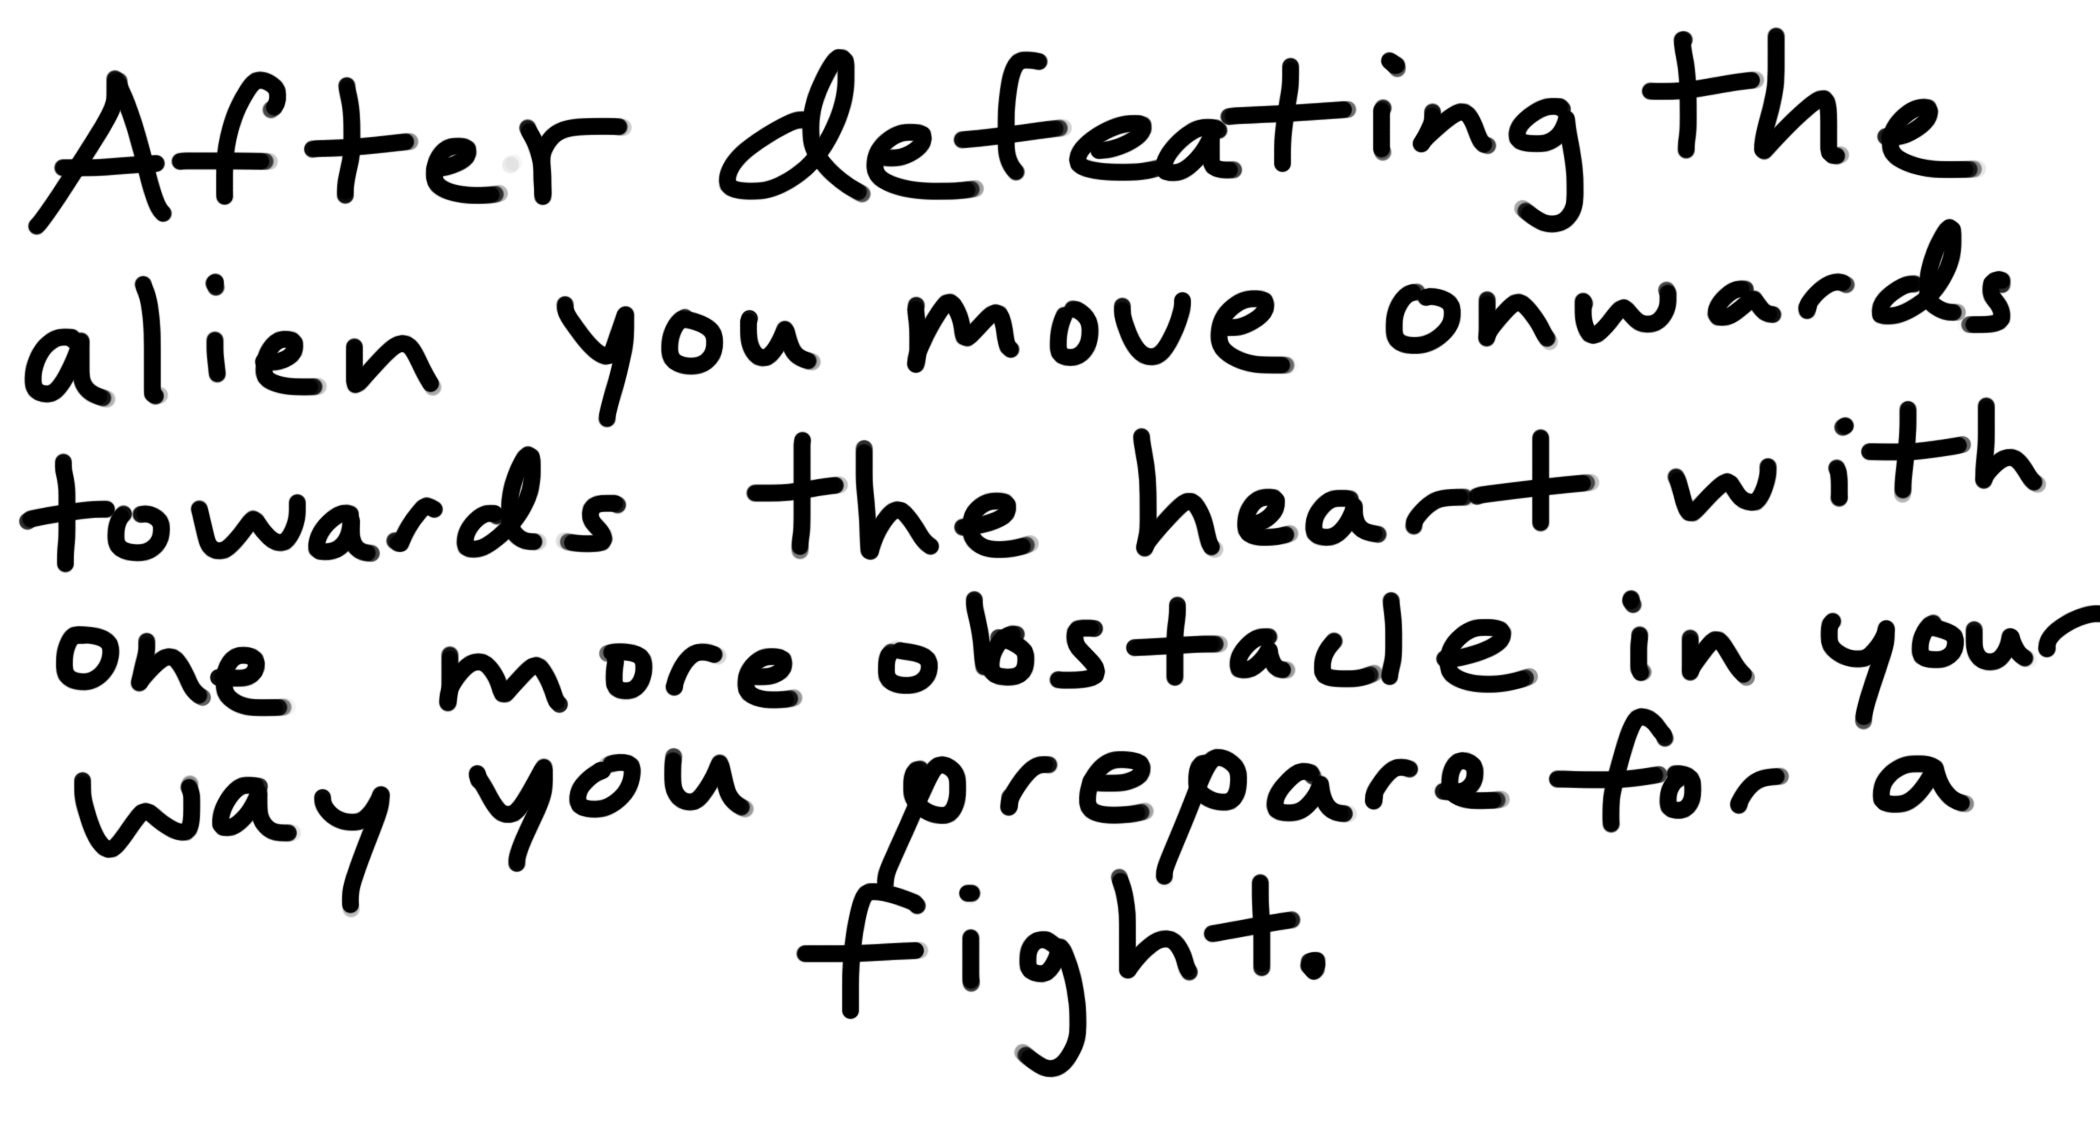 After defeating the
alien you move onwards
towards the heart with
one more obstacle in your
way you prepare for a
fight.